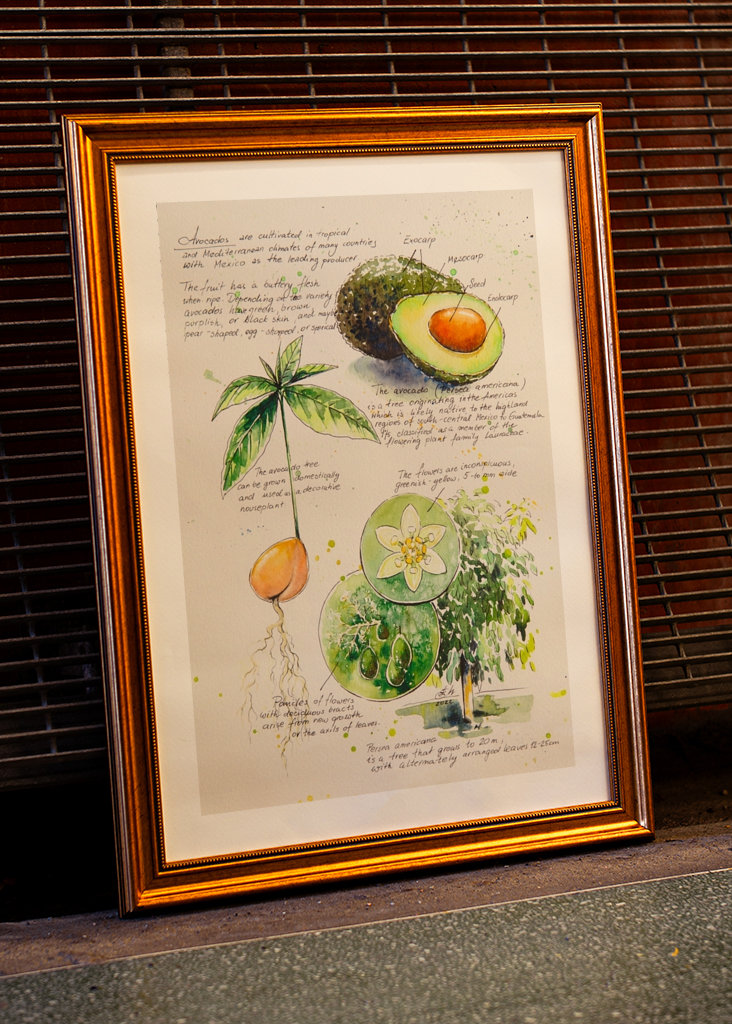 Avocados are cultivated in tropical
and Mediterranean climates of many countries
with Mexico as the leading producer
The fruit has a buttery flesh
when ripe. Depending of the variety
avocados have green, brown,
purplish, or black skin, and maybe
pear-shaped, egg-shaped, or sperical
Exocarp
Mezocarp
Seed
Endocarp
The avocado (Persea americana)
is a tree originating in the Americas
which is likely native to the highland
regions of south-central Mexico to Guatemala
It's classified as a member of the
flowering plant family Lauraceae.
The avocado tree
can be grown domestically
and used as a decorative
houseplant
The flowers are inconspicuous,
greenish-yellow, 5-10 mm wide
Panicles of flowers
with deciduous bracts
arise from new growth
or the axils of leaves.
2022
Persea americana
is a tree that grows to 20 m,
with alternately arranged leaves 12-25cm